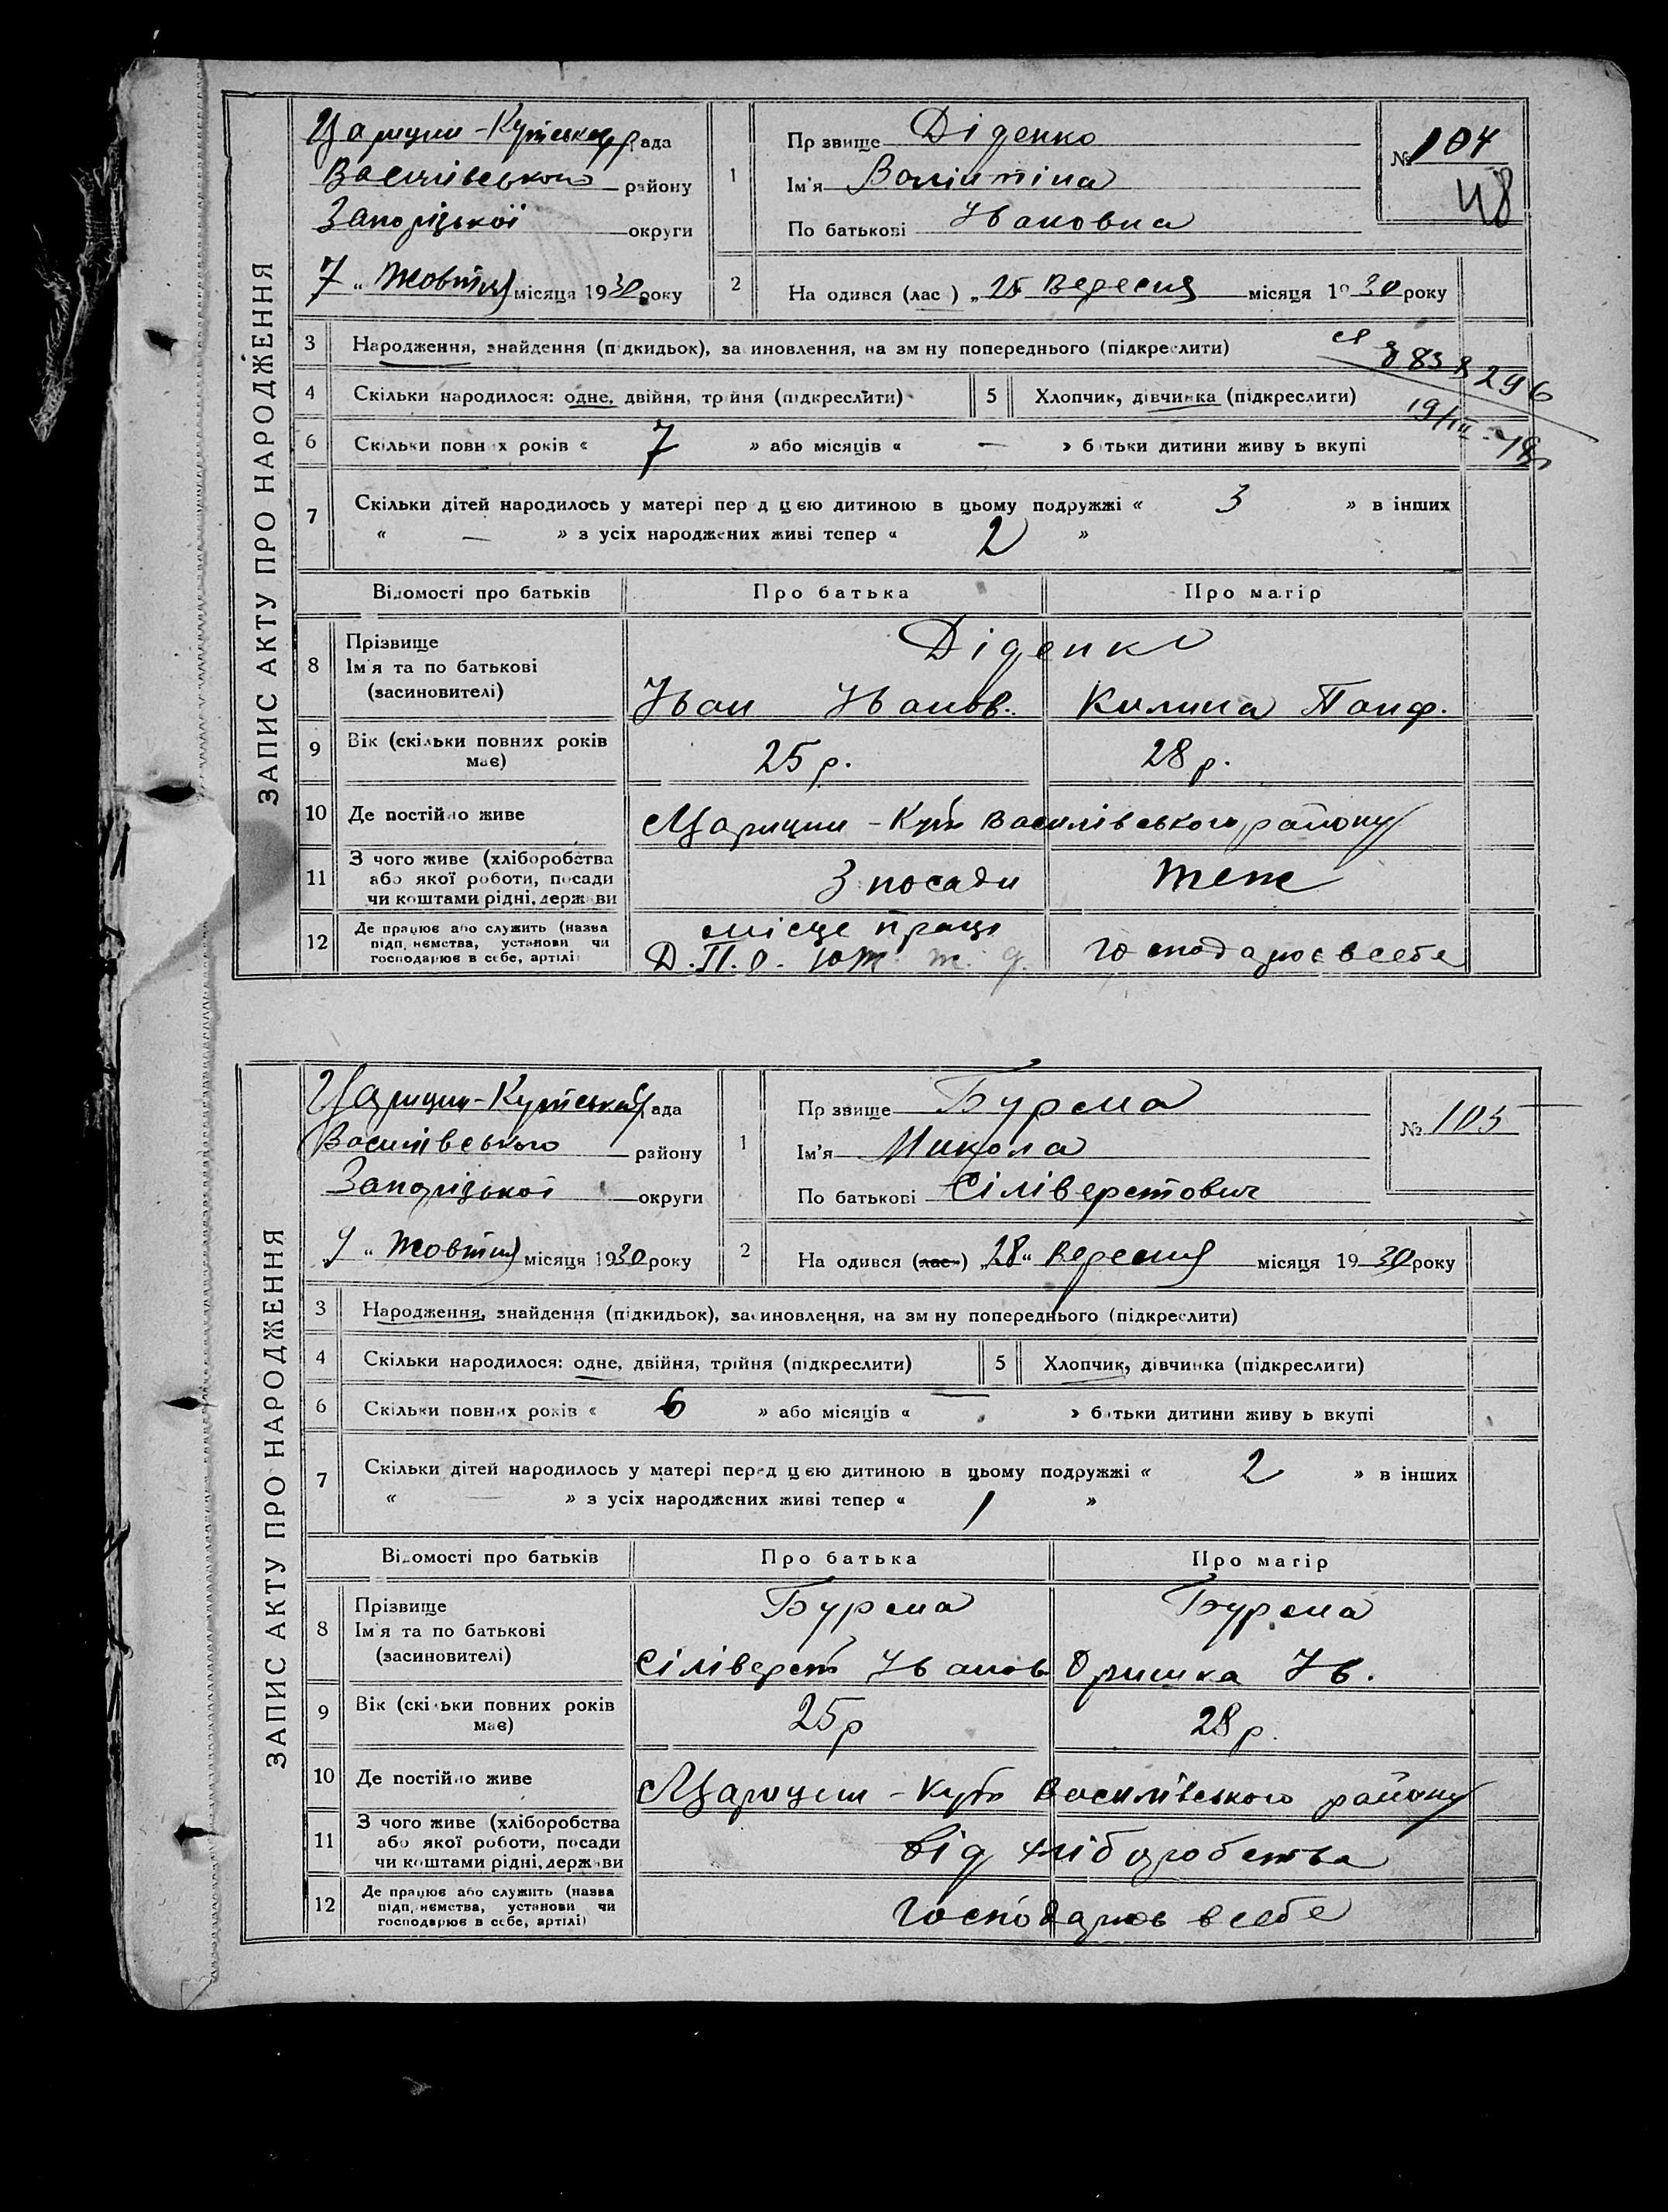 ЗАПИС АКТУ ПРО НАРОДЖЕННЯ
Царицин-Кутська Рада
Василівського району
Запорізької округи
7 " Жовтня місяця 1930 року
1
Пр звище Діденко
Ім'я Валінтіна
По батькові Ивановна
№ 104
48
2
На одився (лас ) „ 25 Вересня місяця 19 30 року
3 Народження, знайдення (підкидьок), за иновлення, на зм ну попереднього (підкреслити)
ся 838296
19/III-48
4 Скільки народилося: одне, двійня, трійня (підкреслити)
5 Хлопчик, дівчинка (підкреслити)
6 Скільки повних років « 7 » або місяців « — » батьки дитини живу ь вкупі
7 Скільки дітей народилось у матері перед цією дитиною в цьому подружжі « 3 » в інших
« — » з усіх народжених живі тепер « 2 »
Відомості про батьків Про батька Про матір
8 Прізвище
Ім'я та по батькові
(засиновителі)
Діденко
Иван Иванов. Килина Панф.
9 Вік (скільки повних років
має)
25 р. 28 р.
10 Де постійно живе
Царицин - Кут Василівського району
11 З чого живе (хліборобства
або якої роботи, посади
чи коштами рідні, держави
З посади теж
12 Де працює або служить (назва
підп, немства, установи чи
господарює в себе, артілі
місце праці
Д.П.О. господарює в себе
ЗАПИС АКТУ ПРО НАРОДЖЕННЯ
Царицин-Кутська Рада
Василівського району
Запорізької округи
9 " Жовтня місяця 1930 року
1
Пр звище Бурма
Ім'я Микола
По батькові Сіліверстович
№ 105
2
На одився (лас ) „ 28 " Вересня місяця 19 30 року
3 Народження, знайдення (підкидьок), засиновлення, на зм ну попереднього (підкреслити)
4 Скільки народилося: одне, двійня, трійня (підкреслити)
5 Хлопчик, дівчинка (підкреслити)
6 Скільки повних років « 6 » або місяців « — » батьки дитини живу ь вкупі
7 Скільки дітей народилось у матері перед цією дитиною в цьому подружжі « 2 » в інших
« — » з усіх народжених живі тепер « 1 »
Відомості про батьків Про батька Про матір
8 Прізвище
Ім'я та по батькові
(засиновителі)
Бурма Бурма
Сіліверст Иванов Оришка Ив.
9 Вік (скільки повних років
має)
25 р 28 р.
10 Де постійно живе
Царицин - Кут Василівського району
11 З чого живе (хліборобства
або якої роботи, посади
чи коштами рідні, держави
Від хліборобства
12 Де працює або служить (назва
підп, немства, установи чи
господарює в себе, артілі)
Господарює в себе